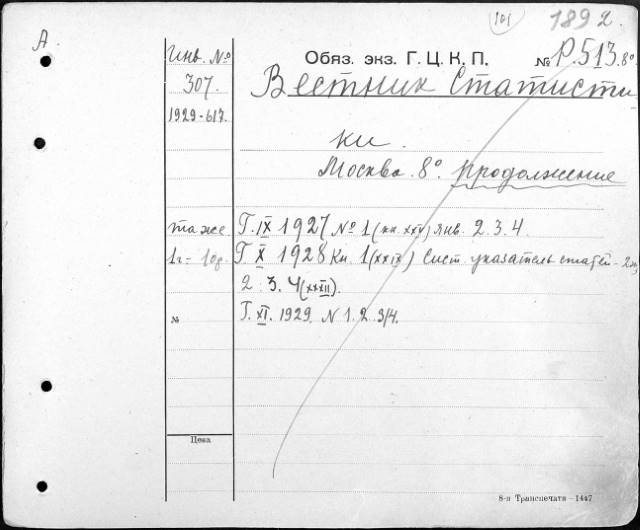 101 1892.
А.
Инв. № Обяз. экз. Г. Ц. К. П. № Р.513.8°
307. Вестник Статисти
1929-617.
ки.
Москва. 8°. продолжение
также Г. IX 1927 № 1 (кн. XXV) Янв. 2. 3. 4.
1г = 10р. Г. X 1928 Кн. 1 (XXIX) Сист. указатель статей
2 3. 4 (XXXII).
№ Г. XI. 1929. N 1. 2 3/4.
Цена
8-я Транспечати — 1447